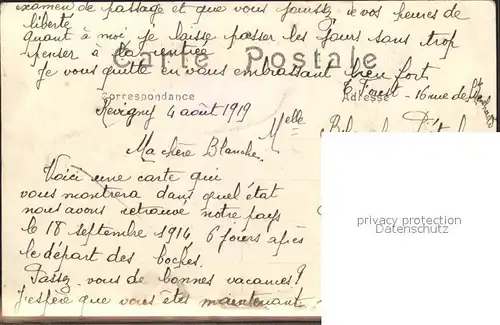 examen de passage et que vous jouissez de vos heures de
liberté
quant à moi, je laisse passer les jours sans trop
penser à la rentrée
Carte Postale
Je vous quitte en vous embrassant bien fort
Correspondance
Adresse
16 rue de
Revigny 4 août 1919
Melle
Ma chère Blanche,
Voici une carte qui
vous montrera dans quel état
nous avons retrouvé notre pays
le 18 septembre 1914 6 jours après
le départ des boches.
Passez-vous de bonnes vacances?
J'espère que vous êtes maintenant
privacy protection
Datenschutz